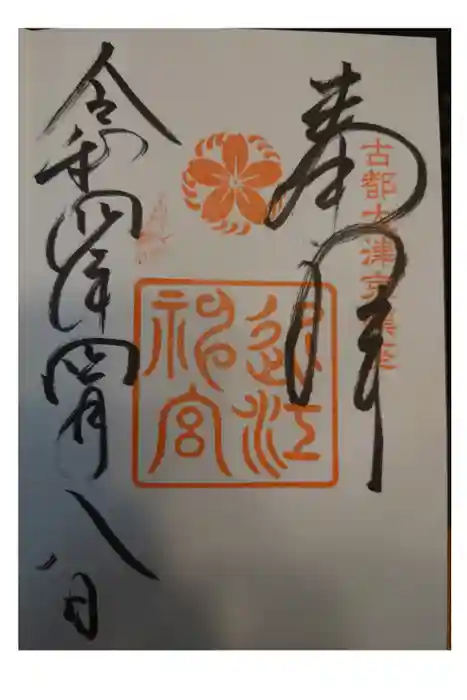 奉拝
古都大津京鎮座
近江神宮
令和四年四月八日